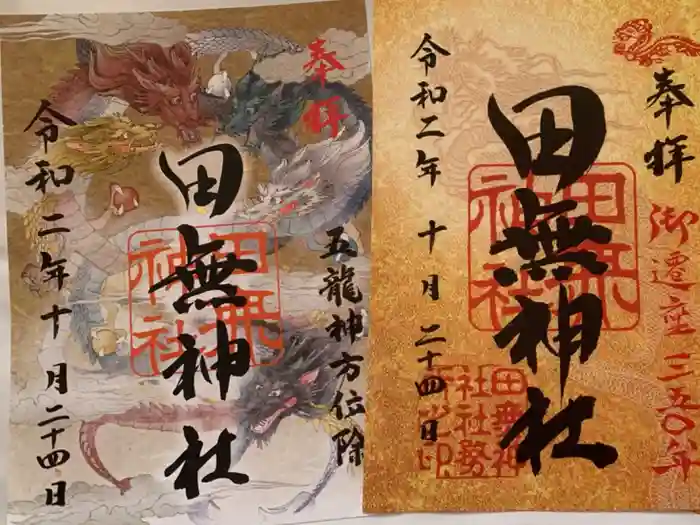 奉拝
五龍神方位除
田無神社
田無神社
令和二年十月二十四日
奉拝
御遷座三五〇年
田無神社
田無神社
令和二年 十月 二十四日
田無神
社社勢